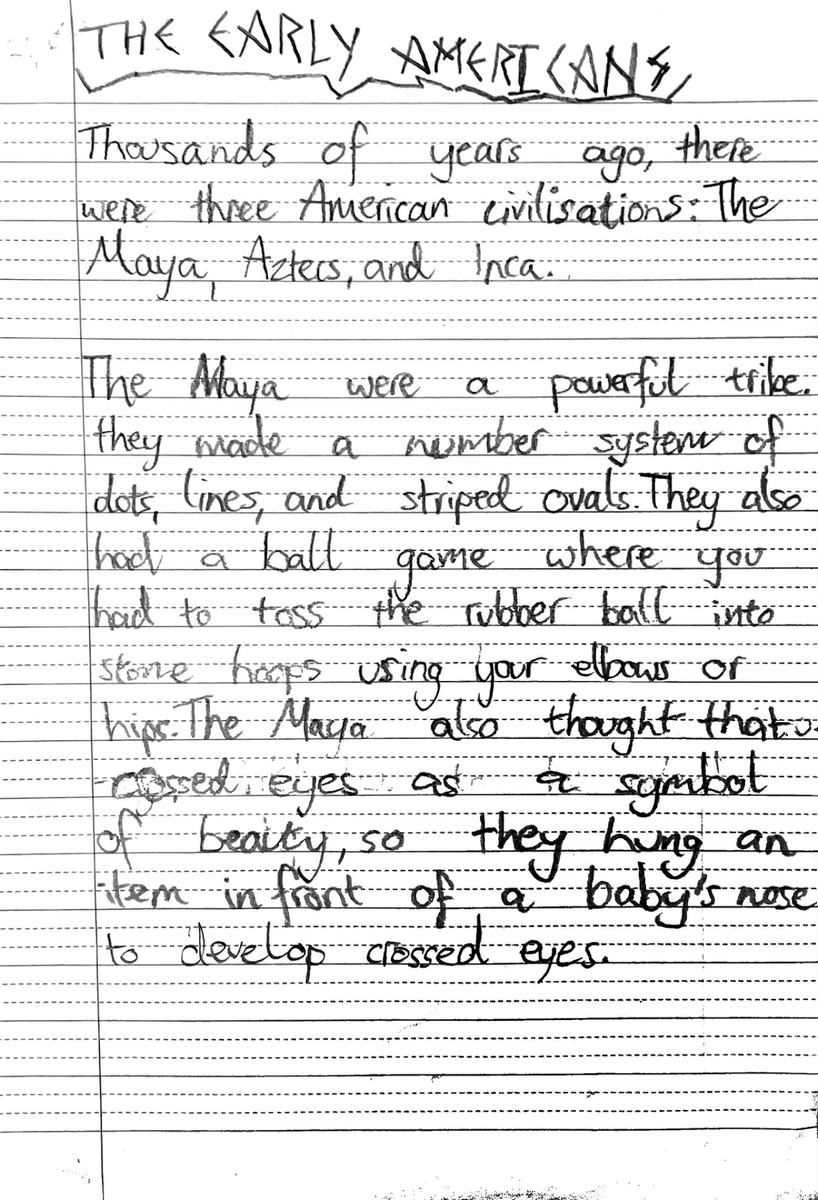 THE EARLY AMERICANS
Thousands of years ago, there
were three American civilisations: The
Maya, Aztecs, and Inca.
The Maya were a powerful tribe.
they made a number system of
dots, lines, and striped ovals. They also
had a ball game where you
had to toss the rubber ball into
stone hoops using your elbows or
hips. The Maya also thought that
crossed eyes as a symbol
of beaity, so they hung an
item in front of a baby's nose
to develop crossed eyes.